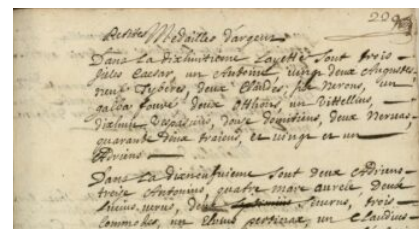 299
Petites Medailles d'argent.
Dans la dixhuitieme Layette sont trois
Jules Caesar, un Antoine, vingt deux Augustes
neuf Tyberes, deux Claudes, six Nerons, un
galba fourré, deux Otthons, un Vittellius,
dixhuit Vespasiens, douse domitiens, deux Nervas,
quarante deux traiens, et vingt et un
Adriens
Dans la dixneufuieme sont deux Adriens
treise Antonins, quatre marc aurele, deux
lucius verus, deux Severus, trois
Commodes, un Elvius pertinax, un Claudius